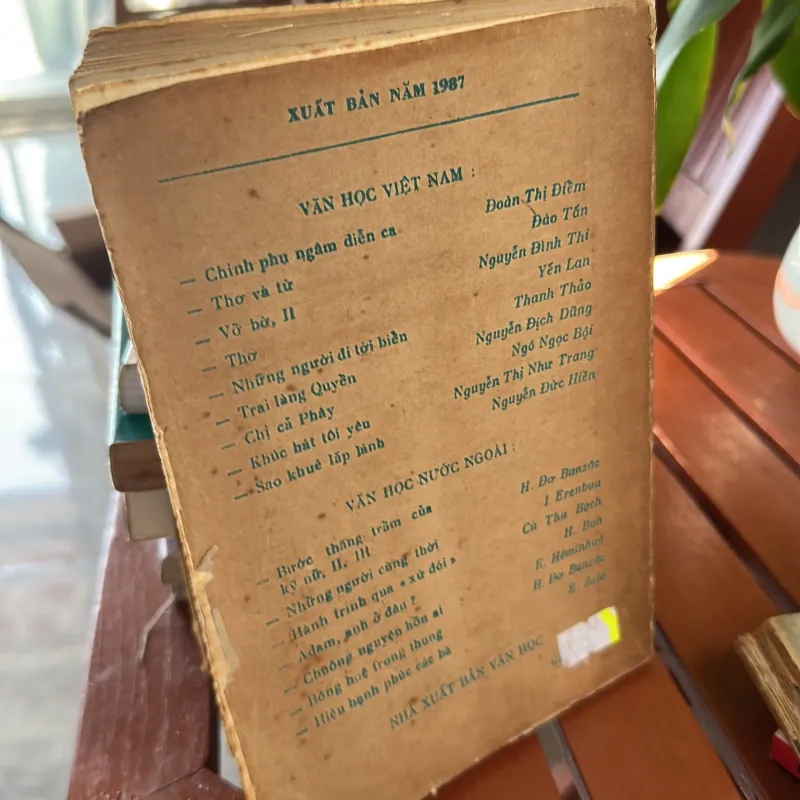 XUẤT BẢN NĂM 1987
VĂN HỌC VIỆT NAM :
— Chinh phụ ngâm diễn ca Đoàn Thị Điểm
— Thơ và từ Đào Tấn
— Vỡ bờ, II Nguyễn Đình Thi
— Thơ Yến Lan
— Những người đi tới biển Thanh Thảo
— Trai làng Quyền Nguyễn Địch Dũng
— Chị cả Phây Ngô Ngọc Bội
— Khúc hát tôi yêu Nguyễn Thị Như Trang
— Sao khuê lấp lánh Nguyễn Đức Hiền
VĂN HỌC NƯỚC NGOÀI :
— Bước thăng trầm của
kỹ nữ, II, III H. Đơ Banzắc
— Những người cùng thời I Erenbua
— Hành trình qua « xứ đói » Cù Thu Bạch
— Adam, anh ở đâu ? H. Bon
— Chuông nguyện hồn ai E. Hêminhuê
— Bông huệ trong thung H. Đơ Banzắc
— Hiệu hạnh phúc các bà E. Zola
NHÀ XUẤT BẢN VĂN HỌC